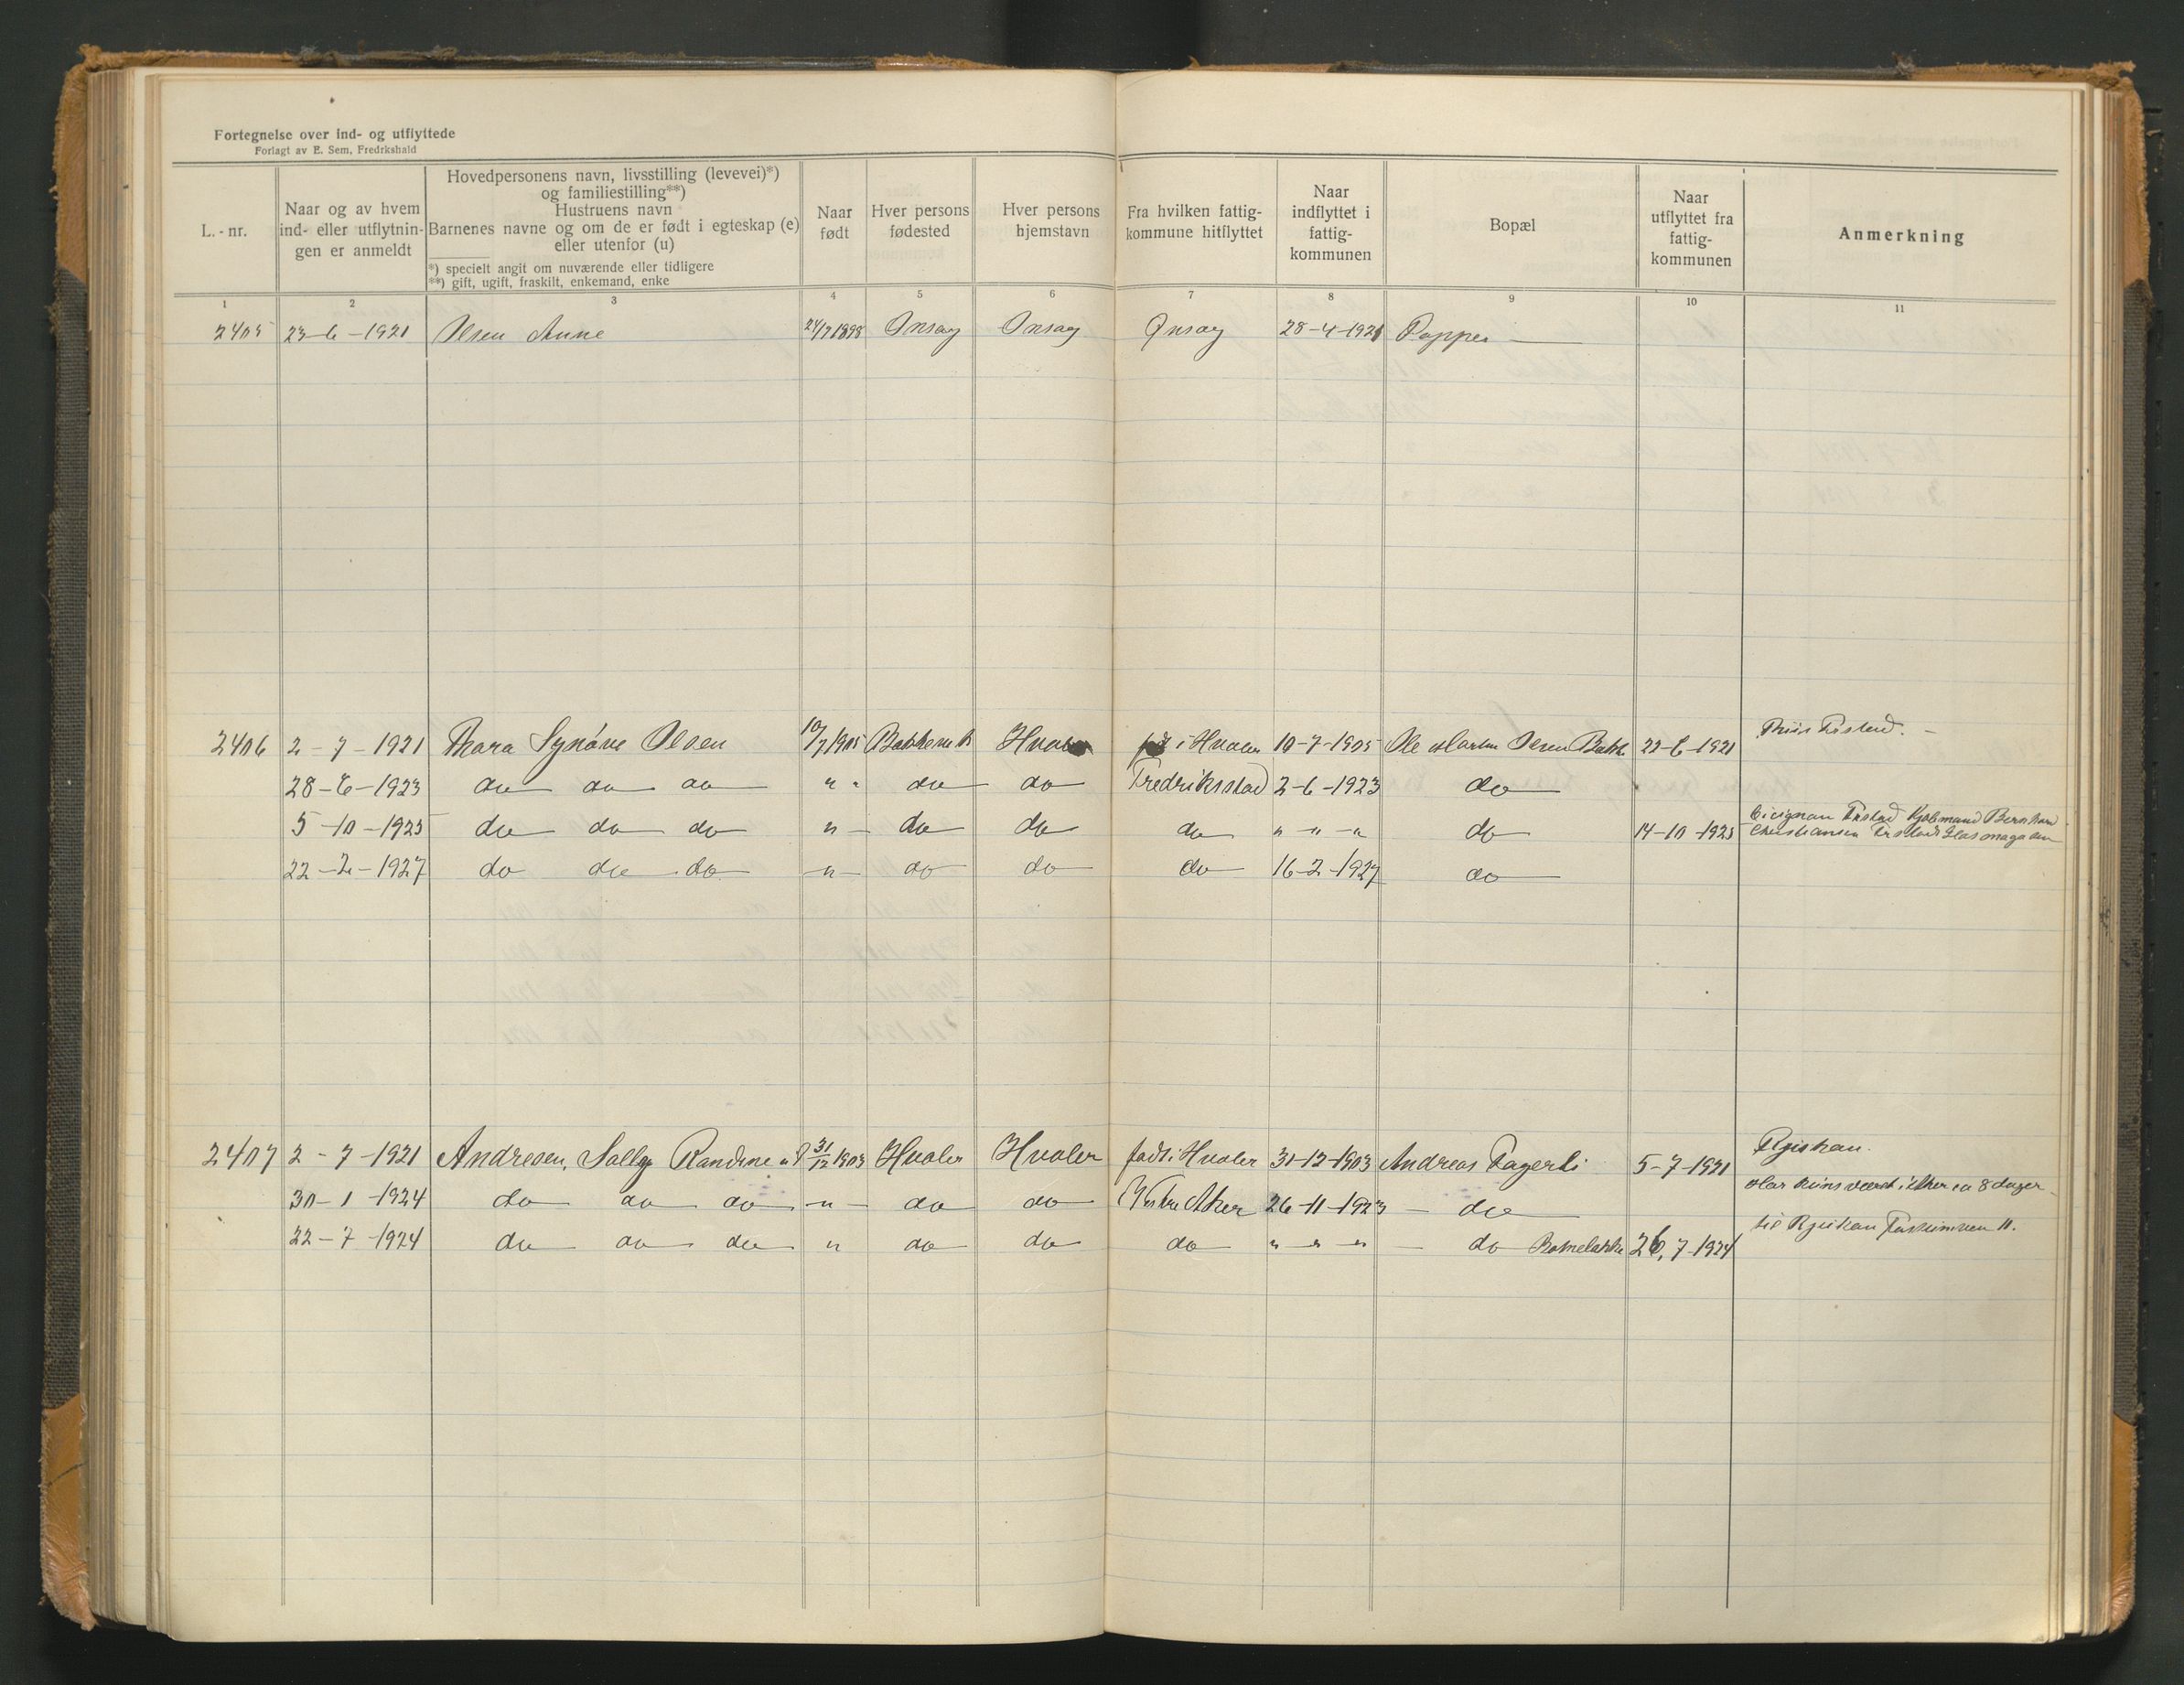 Fortegnelse over ind- og utflyttede
Forlagt av E. Sem, Fredrkshald
L.-nr.
Naar og av hvem ind- eller utflytnin- gen er anmeldt
Hovedpersonens navn, livsstilling (levevei)*)
og familiestilling**)
Hustruens navn
Barnenes navne og om de er født i egteskap (e)
eller utenfor (u)
*) specielt angit om nuværende eller tidligere
**) gift, ugift, fraskilt, enkemand, enke
Naar født
Hver persons fødested
Hver persons hjemstavn
Fra hvilken fattig- kommune hitflyttet
Naar indflyttet i fattig- kommunen
Bopæl
Naar utflyttet fra fattig- kommunen
Anmerkning
1 2 3 4 5 6 7 8 9 10 11
2405 23-6-1921 Olsen Anne 24/7 1898 Onsøy Onsøy Onsøy 28-4-1921 Papper
2406 2-7-1921 Thora Synøve Olsen 10/7 1905 Hvaler i Hvaler 10-7-1905 Ole Martin Olsen Bakke 22-6-1921 F.stad.
28-6-1923 do do do " " do do Fredriksstad 2-6-1923 do
5-10-1925 do do do " do do do " " " do 14-10-1925 F.stad Kjøbmand Bernhard
Christiansen F.stads Glasmagasin
22-2-1927 do do do " do do do 16-2-1927 do
2407 2-7-1921 Andresen, Solley Randine 31/12 1903 Hvaler Hvaler født i Hvaler 31-12-1903 Andreas Fagerli 5-7-1921 Rjukan.
30-1-1924 do do do " do do Vestre Aker 26-11-1923 do Har kuns været i Aker ca 8 dager
22-7-1924 do do do " do do do " " " do 26,7-1924 til Rjukan 11.